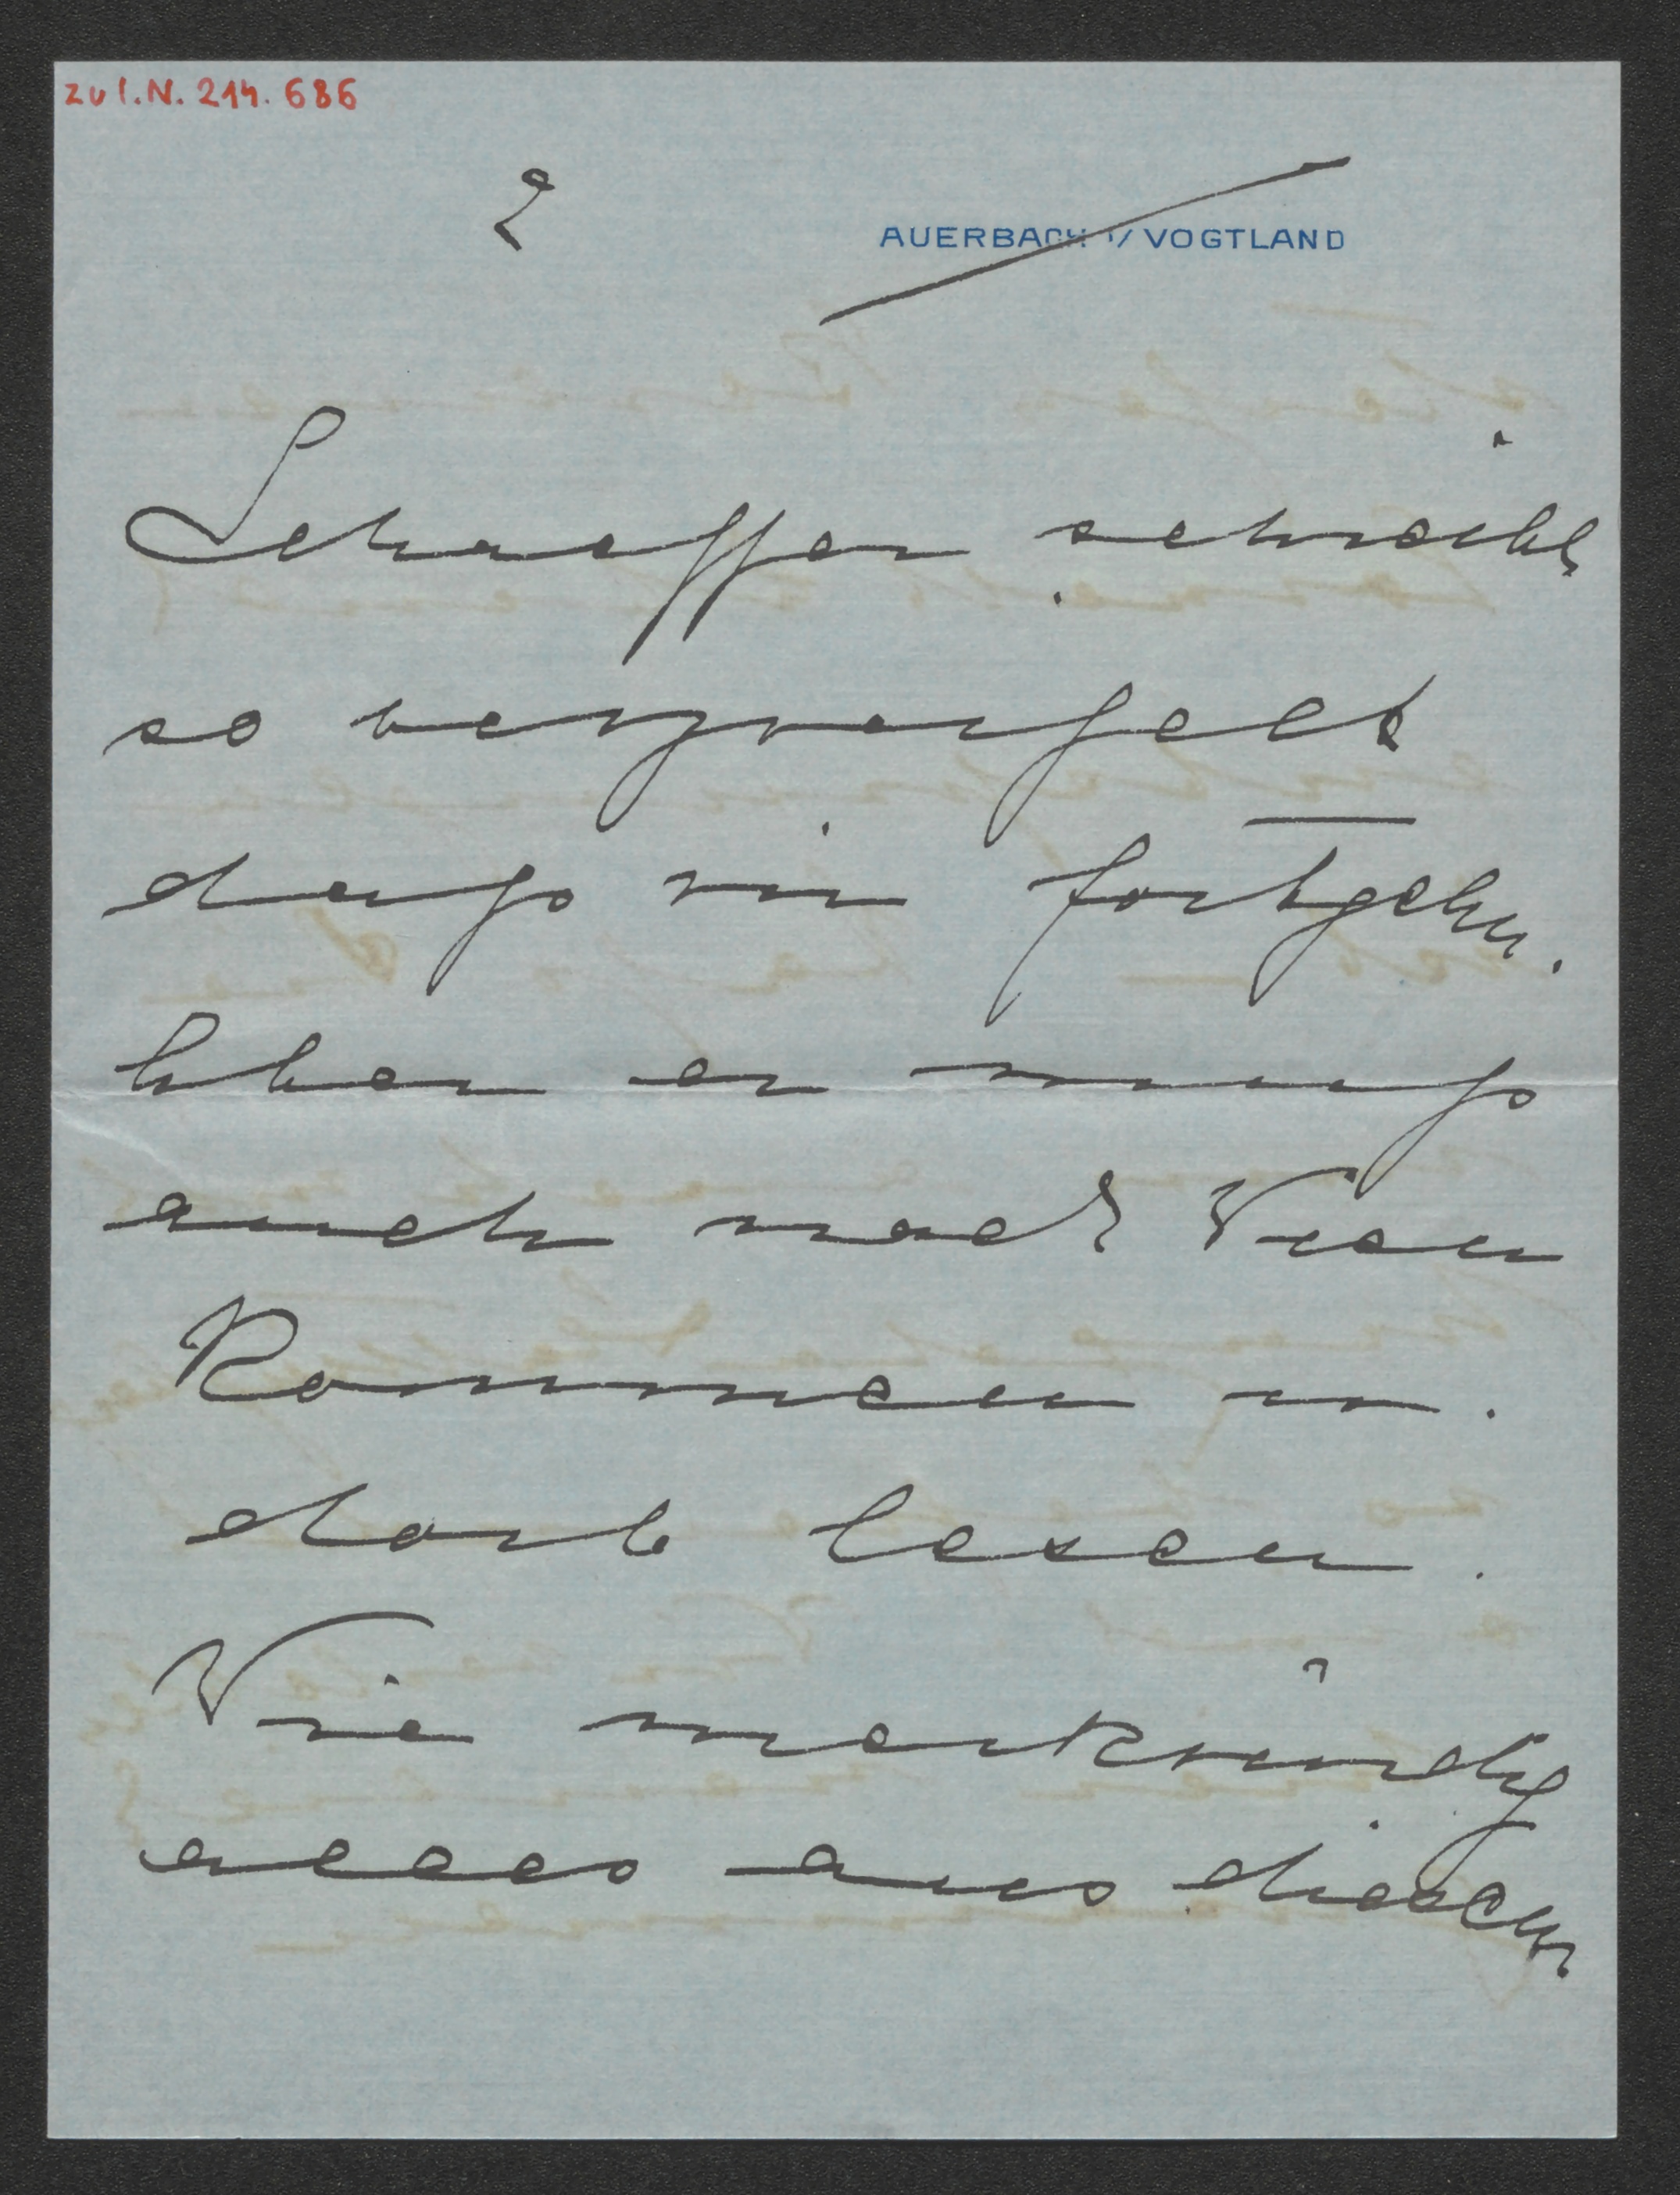 zu I.N. 214.686
2
AUERBACH i/ VOGTLAND
Schaeffer schreibt
so verzweifelt
dass wir fortgehn.
Aber er muss
auch nach Wien
Kommen u.
dort lesen.
Wie merkwürdig
alles aus diesem